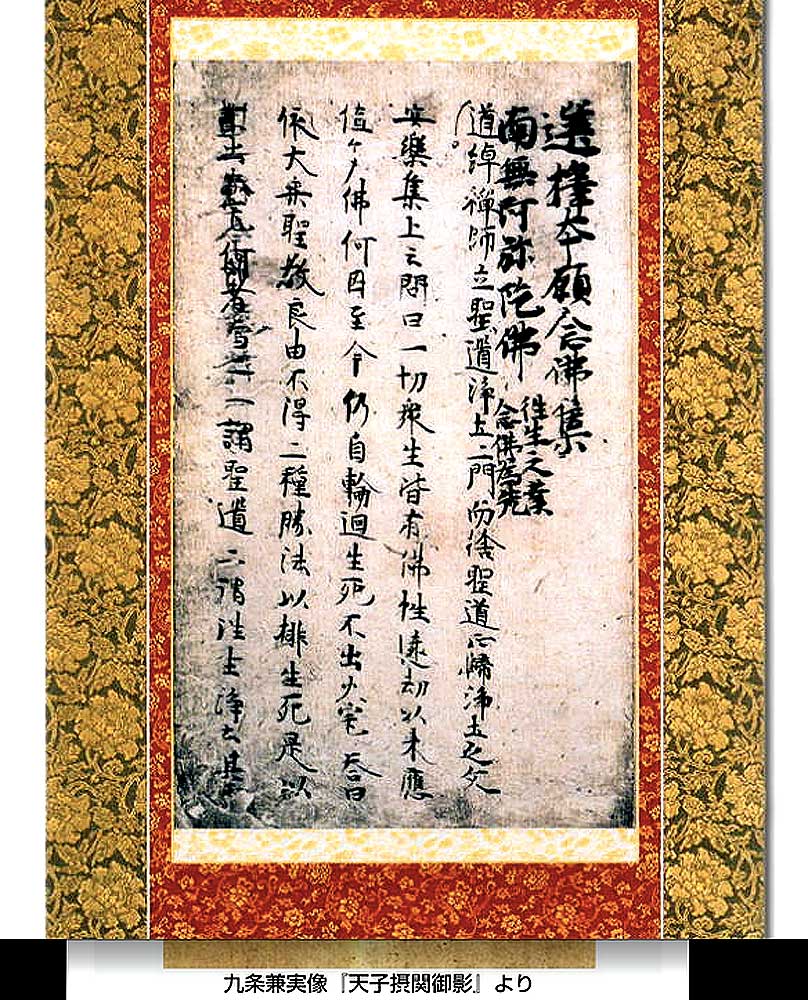 選擇本願念佛集
南無阿弥陀佛 往生之業
念佛為先
道綽禪師立聖道淨土二門而捨聖道正歸淨土之文
安樂集上云問曰一切衆生皆有佛性遠劫以来應
値多佛何因至今仍自輪迴生死不出火宅答曰
依大乗聖教良由不得二種勝法以排生死是以
何者為二一謂聖道二謂往生淨土其
九条兼実像『天子摂関御影』より